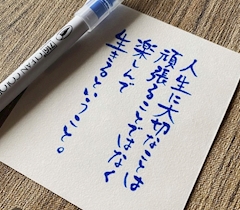 人生に大切なことは
頑張ることではなく
楽しんで
生きるということ。